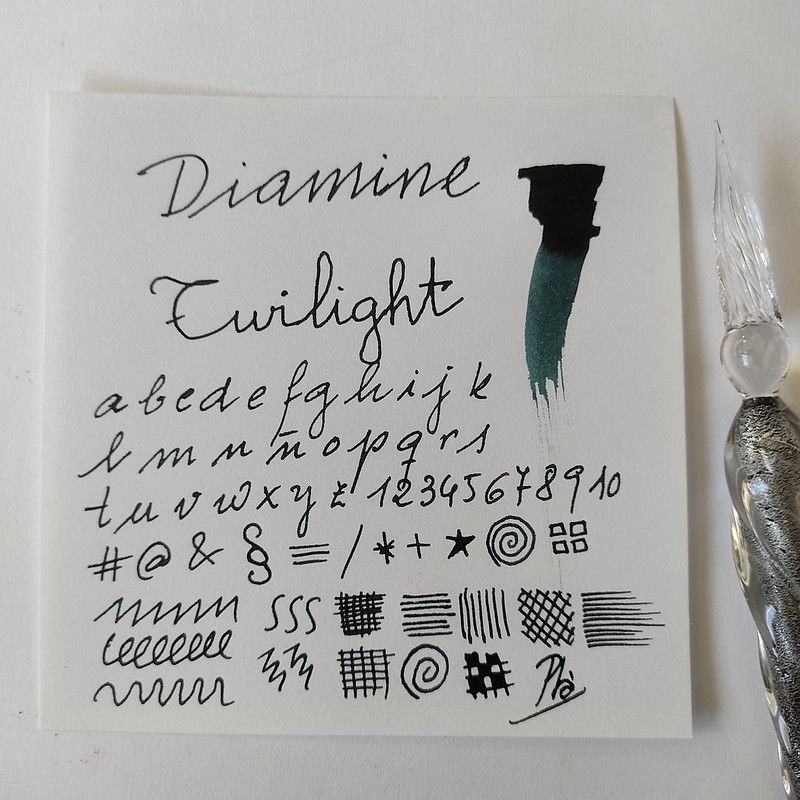 Diamine
Twilight
a b c d e f g h i j k
l m n ñ o p q r s
t u v w x y z 1 2 3 4 5 6 7 8 9 10
# @ & § ≡ / * + ★